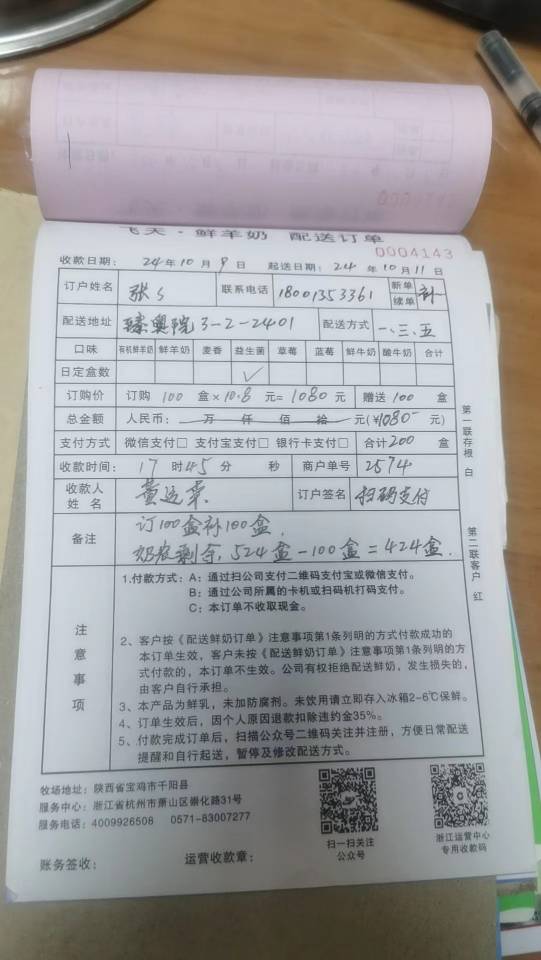 飞天·鲜羊奶 配送订单
0004143
收款日期: 24年10月9日 起送日期: 24年10月11日
订户姓名 张 联系电话 18001353361 新单 续单 补
配送地址 臻奥院 3-2-2401 配送方式 一、三、五
口味 有机鲜羊奶 鲜羊奶 麦香 益生菌 草莓 蓝莓 鲜牛奶 酸牛奶 合计
日定盒数 ✓
订购价 订购 100 盒×10.8元=1080元 赠送 100 盒
总金额 人民币: 万 仟 佰 拾 元(¥1080 元)
支付方式 微信支付□ 支付宝支付□ 银行卡支付□ 合计200 盒
收款时间: 17时45分 秒 商户单号 2574
收款人姓名 黄运 订户签名 扫码支付
备注 订100盒补100盒,
剩余, 524盒-100盒=424盒.
注意事项
1.付款方式: A: 通过扫公司支付二维码支付宝或微信支付。
B: 通过公司所属的卡机或扫码机打码支付。
C: 本订单不收取现金。
2、客户按《配送鲜奶订单》注意事项第1条列明的方式付款成功的
本订单生效,客户未按《配送鲜奶订单》注意事项第1条列明的方
式付款的,本订单不生效。公司有权拒绝配送鲜奶,发生损失的,
由客户自行承担。
3、本产品为鲜乳,未加防腐剂。未饮用请立即存入冰箱2-6℃保鲜。
4、订单生效后,因个人原因退款扣除违约金35%。
5、付款完成订单后,扫描公众号二维码关注并注册,方便日常配送
提醒和自行起送,暂停及修改配送方式。
第一联存根 白
第二联客户 红
牧场地址: 陕西省宝鸡市千阳县
服务中心: 浙江省杭州市萧山区崇化路31号
服务电话: 4009926508 0571-83007277
扫一扫关注
公众号
浙江运营中心
专用收款码
账务签收: 运营收款章: